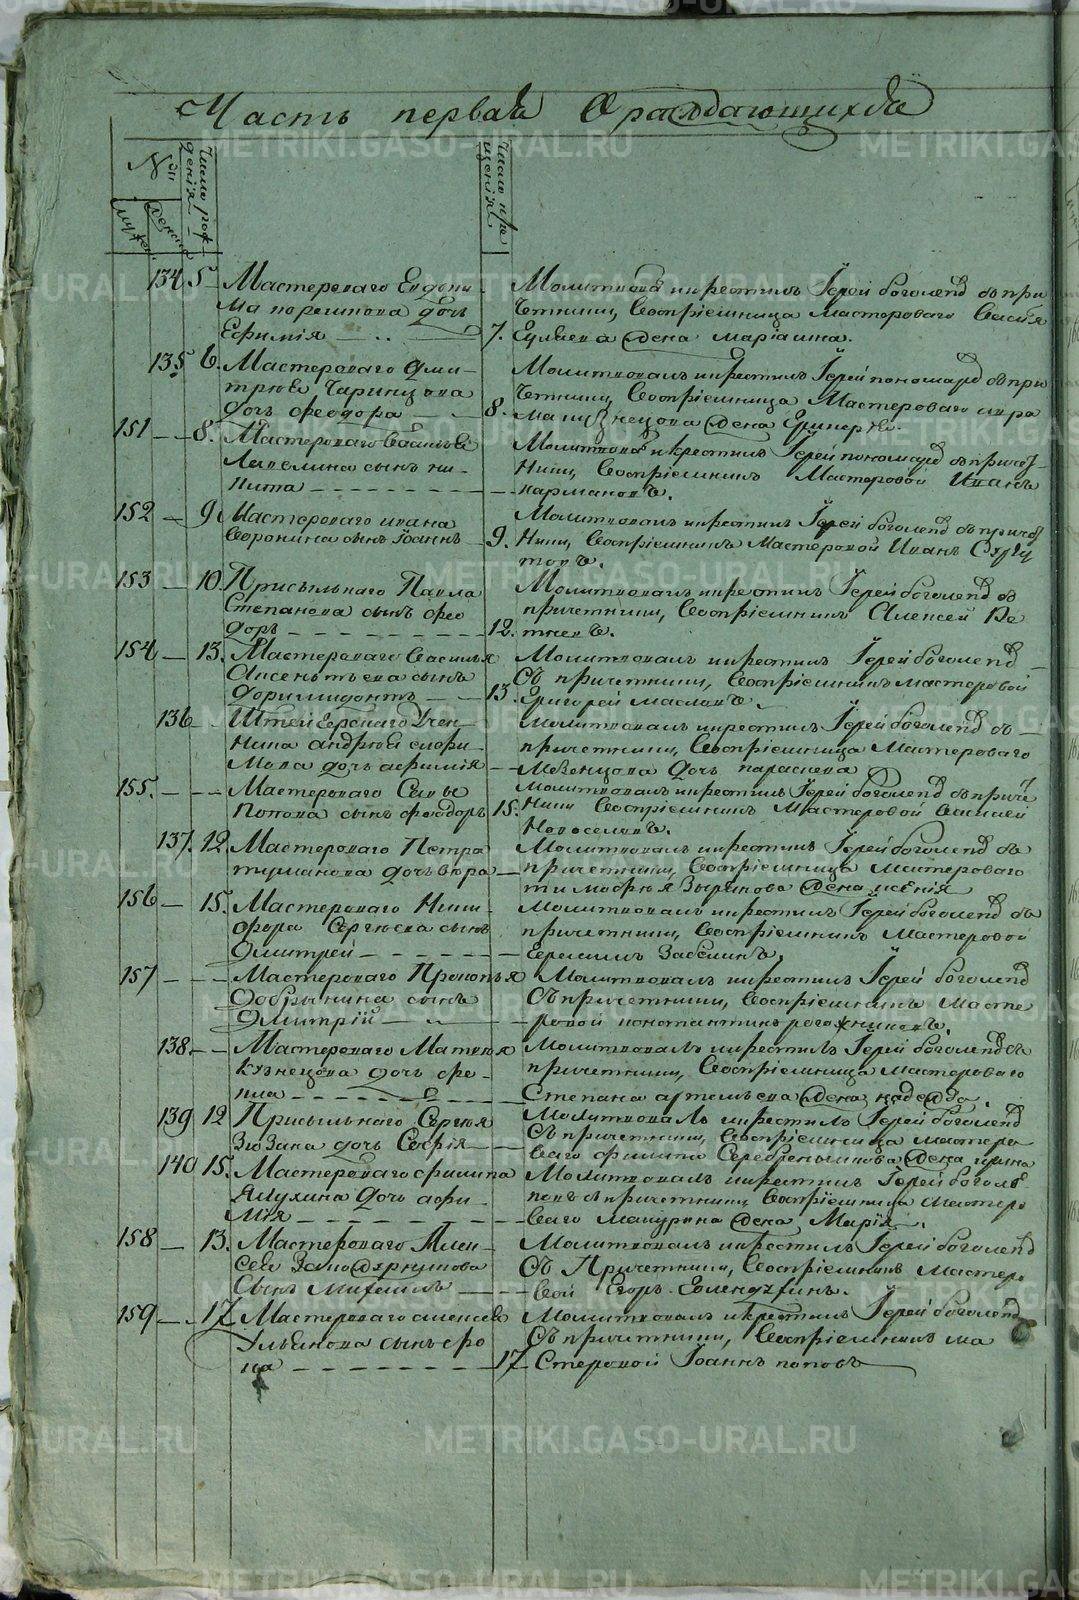 Часть первая О раждающихся
№
Число рож
денія
Число кре
щенія
мужеск
женска
134 5 Мастероваго Евдоки
ма порешнова дочь
Ефимія
Молитвовал и крестилъ Іерей боголеповъ съ при
четники, Восприемница Мастероваго Василія
7. жена маріамна.
135 6. Мастероваго Дми
трия Чаринцова
дочь феодора
Молитвовалъ и крестилъ Іерей пономарев съ при
четники, Восприемница Мастероваго
8. жена
151 8. Мастероваго Василья
сынъ ни
кита
Молитвовал и крестилъ Іерей пономарев съ причет
ники, Восприемникъ Мастеровой Иванъ
кармановъ.
152 9. Мастероваго ивана
Воронина сынъ Іоаннъ
Молитвовалъ и крестилъ Іерей боголепов съ причет
9. ники, Восприемникъ Мастеровой Иванъ
товъ.
153 10. Присыльнаго Павла
Степанова сынъ фео
доръ
Молитвовалъ и крестилъ Іерей боголепов съ
причетники, Восприемникъ Алексей
12.
154 13. Мастероваго Василья
Аксеньтьева сынъ
доримидонтъ
Молитвовалъ и крестилъ Іерей боголепов
Съ причетники, Восприемникъ мастеровой
13. Григорей масловъ.
136 Штейгерскаго учен
ника андрея
дочь афимия
Молитвовалъ и крестилъ Іерей боголепов съ
причетники, Восприемница Мастероваго
Мезенцова дочь параскева
155. Мастероваго Савы
Попова сынъ феодоръ
Молитвовалъ и крестилъ Іерей боголепов съ приче
15. ники Восприемникъ Мастеровой Василей
Новоселовъ.
137. 12. Мастероваго Петра
туманова дочь вера
Молитвовалъ и крестилъ Іерей боголепов съ
причетники, Восприемница Мастероваго
тимофея Зырянова жена ксенія
156 15. Мастероваго Ники
фора Сергеева сынъ
Димитрей
Молитвовалъ и крестилъ Іерей боголепов съ
причетники, Восприемникъ Мастеровой
Забелинъ.
157 Мастероваго Прокопья
Добрынина сынъ
Димитрій
Молитвовалъ и крестилъ Іерей боголепов
Съ причетники, Восприемникъ Масте
ровой константинъ рогожниковъ.
138. Мастероваго Матвея
кузнецова дочь фе
кла
Молитвовалъ и крестилъ Іерей боголепов съ
причетники, Восприемница мастероваго
Степана артемьева жена надежда.
139 12 Присыльнаго Сергея
дочь Софія
Молитвовалъ и крестилъ Іерей боголепов
Съ причетники, Восприемница мастеро
ваго филипа Серебреникова жена ирина
140 15. Мастероваго филипа
Ялухина дочь афи
мія
Молитвовалъ и крестилъ Іерей боголе
повъ съ причетники, Восприемница Мастеро
ваго Мачурина жена Марія.
158 13. Мастероваго Алек
сея сынъ Михаилъ
Молитвовалъ и крестилъ Іерей боголепов
Съ Причетники, Восприемникъ Мастеро
вой Егоръ
159 17. Мастероваго алексея
Ульянова сынъ фо
ка
Молитвовалъ и крестилъ Іерей боголепов
Съ причетники, Восприемникъ ма
17 Стеровой Іоаннъ поповъ
METRIKI.GASO-URAL.RU